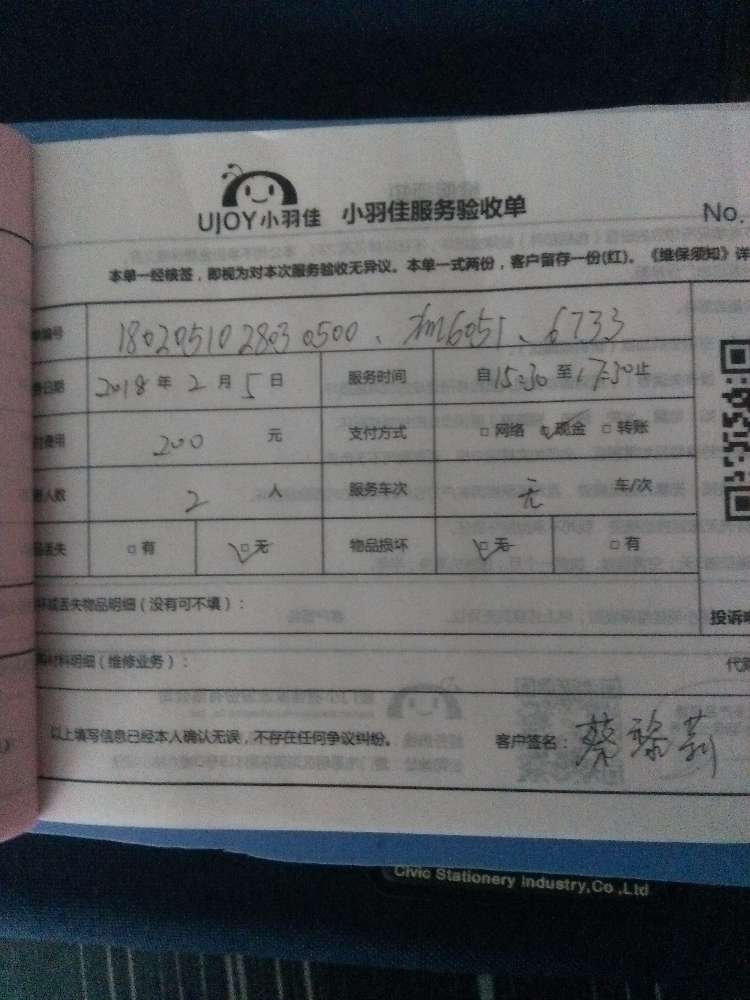 UJOY小羽佳 小羽佳服务验收单
No.
本单一经核签，即视为对本次服务验收无异议。本单一式两份，客户留存一份(红)。《维保须知》详
编号 1802051028030500、 6051、6733
日期 2018 年 2 月 5 日 服务时间 自15:30至17:30止
费用 200 元 支付方式 □ 网络 ☑ 现金 □ 转账
人数 2 人 服务车次 无 车/次
丢失 □ 有 ☑ 无 物品损坏 ☑ 无 □ 有
坏或丢失物品明细（没有可不填）： 投诉
材料明细（维修业务）： 代
以上填写信息已经本人确认无误，不存在任何争议纠纷。 客户签名：蔡黎莉
Civic Stationery Industry,Co.,Ltd